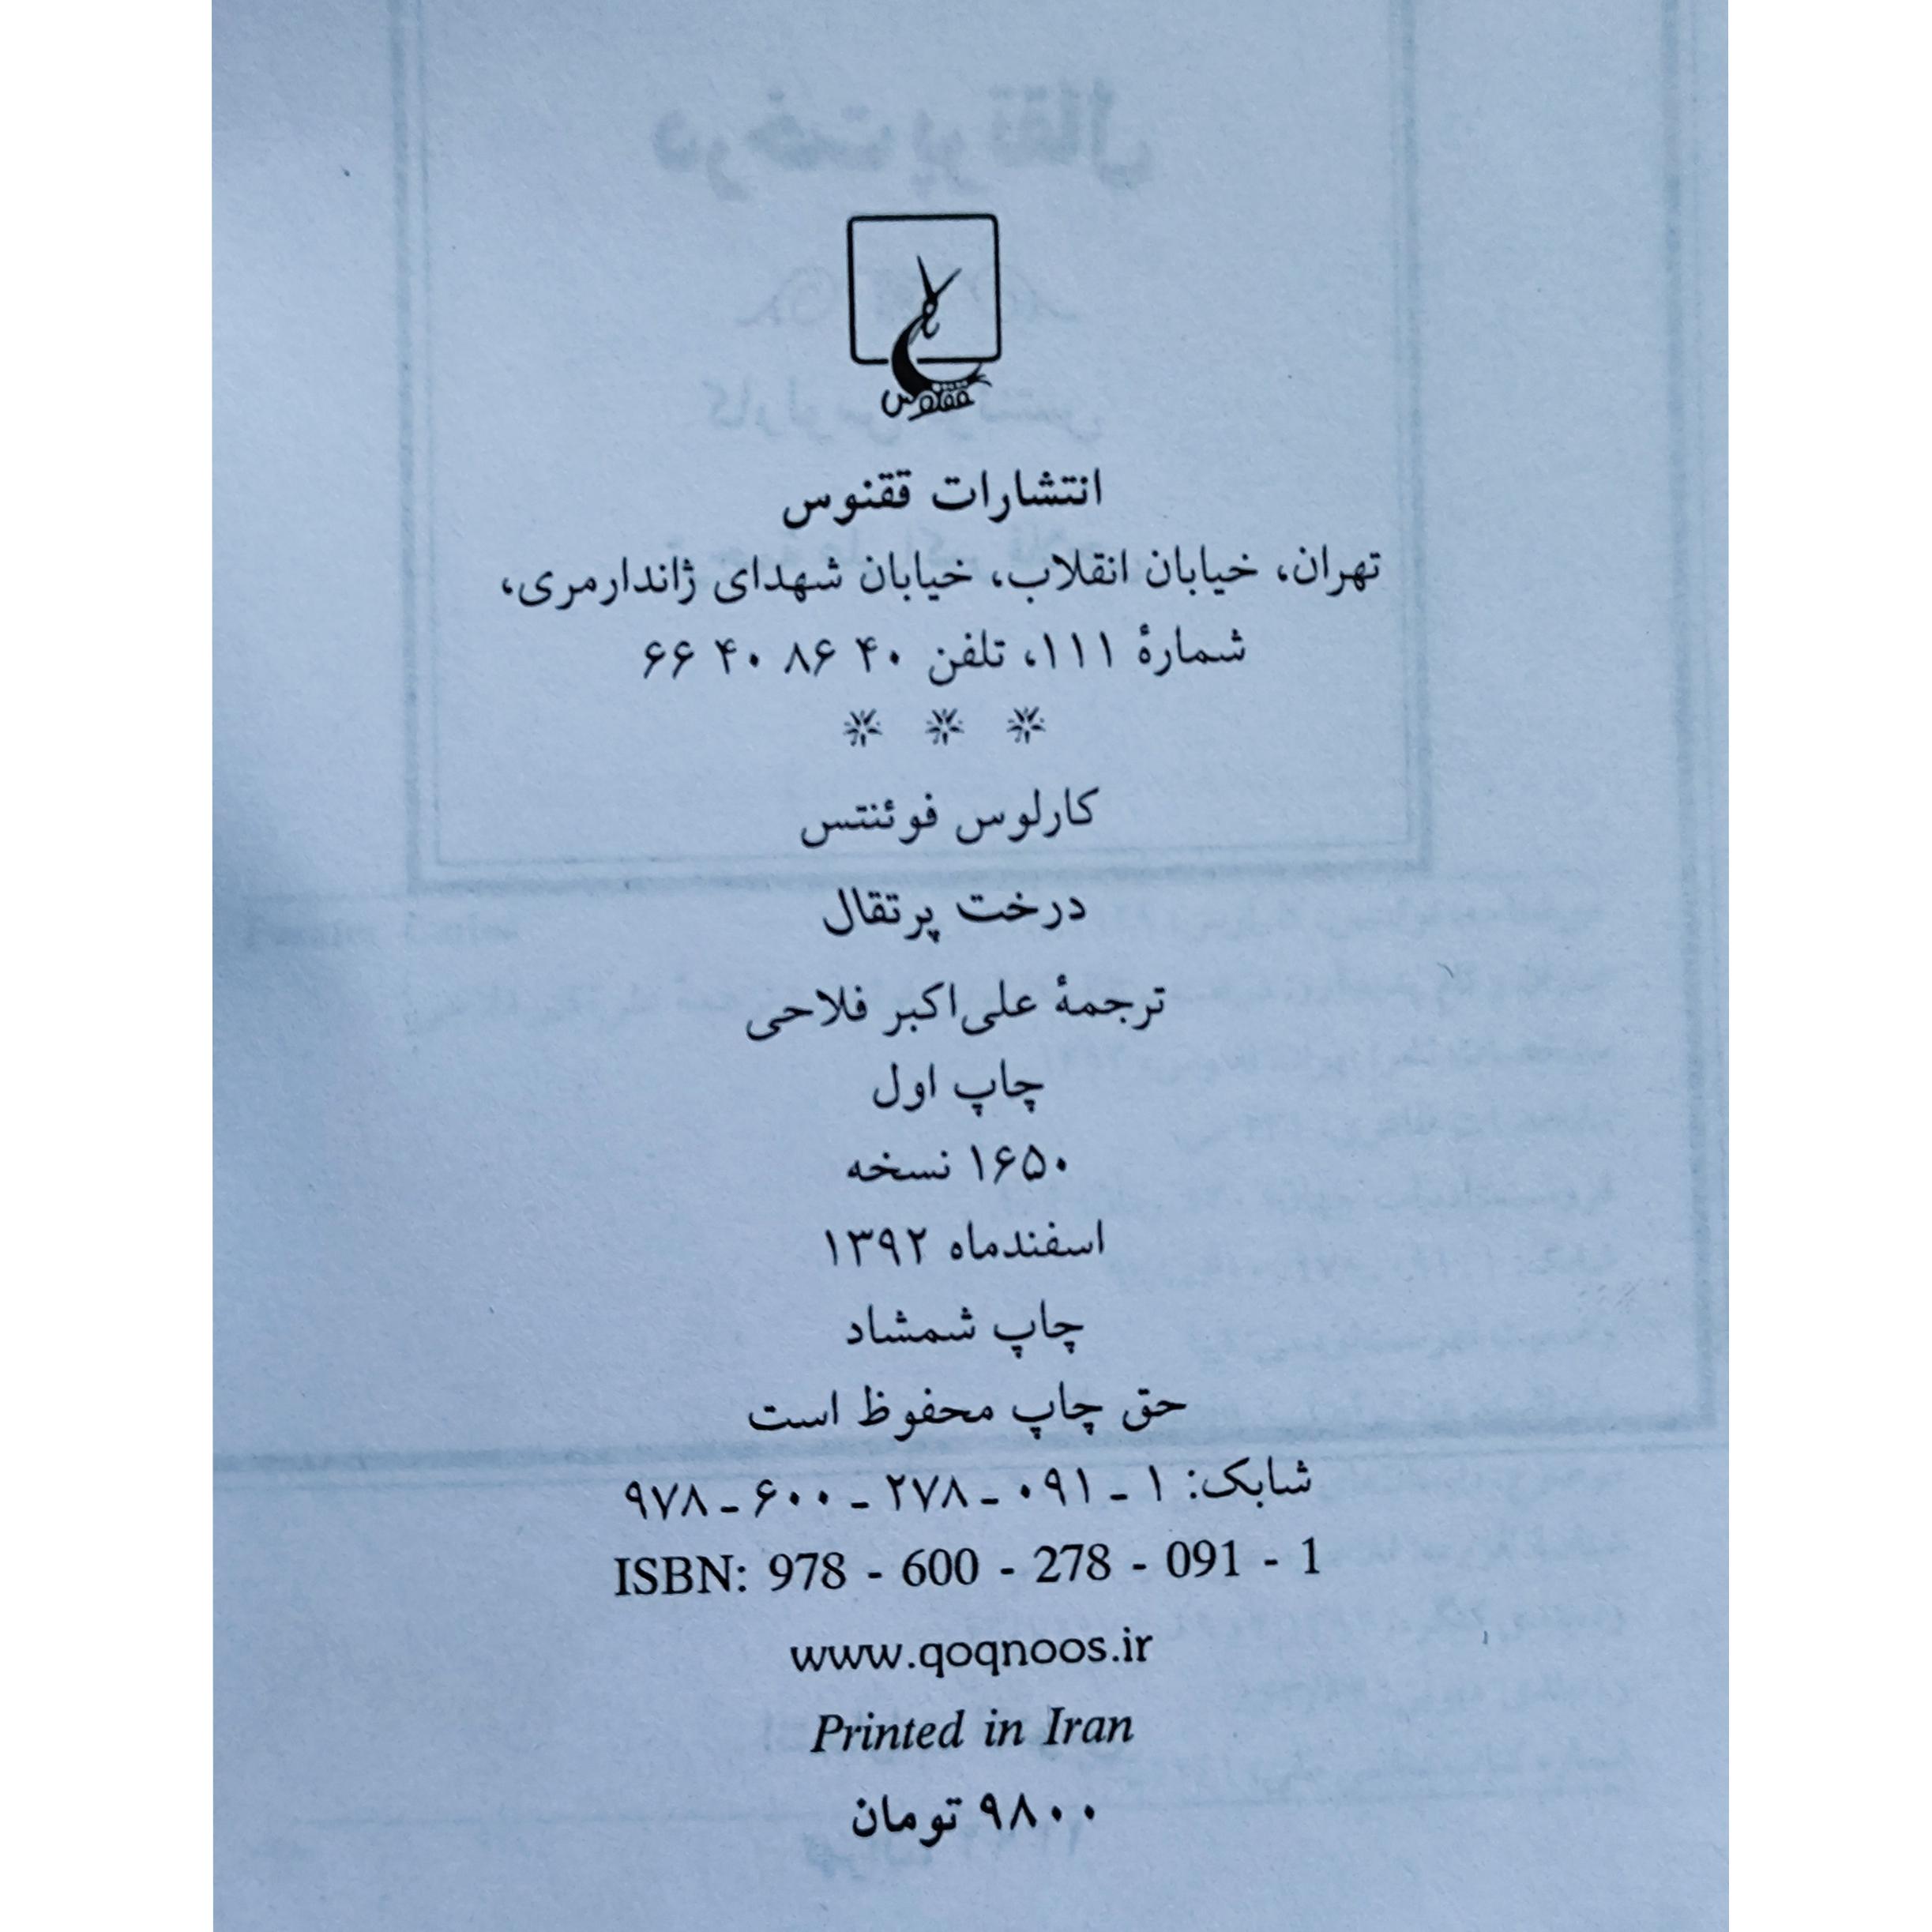 ققنوس
انتشارات ققنوس
تهران، خیابان انقلاب، خیابان شهدای ژاندارمری،
شمارهٔ ۱۱۱، تلفن ۴۰ ۸۶ ۴۰ ۶۶
کارلوس فوئنتس
درخت پرتقال
ترجمهٔ علی‌اکبر فلاحی
چاپ اول
۱۶۵۰ نسخه
اسفندماه ۱۳۹۲
چاپ شمشاد
حق چاپ محفوظ است
شابک: ۱ ـ ۰۹۱ ـ ۲۷۸ ـ ۶۰۰ ـ ۹۷۸
ISBN: 978 - 600 - 278 - 091 - 1
www.qoqnoos.ir
Printed in Iran
۹۸۰۰ تومان